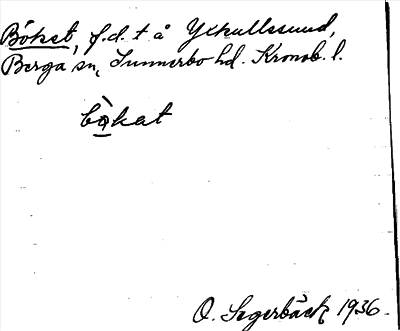 Böket, f.d. t å Yxkullsund,
Berga sn, Sunnerbo hd. Kronob. l.
bòkat
O. Segerbäck 1936.